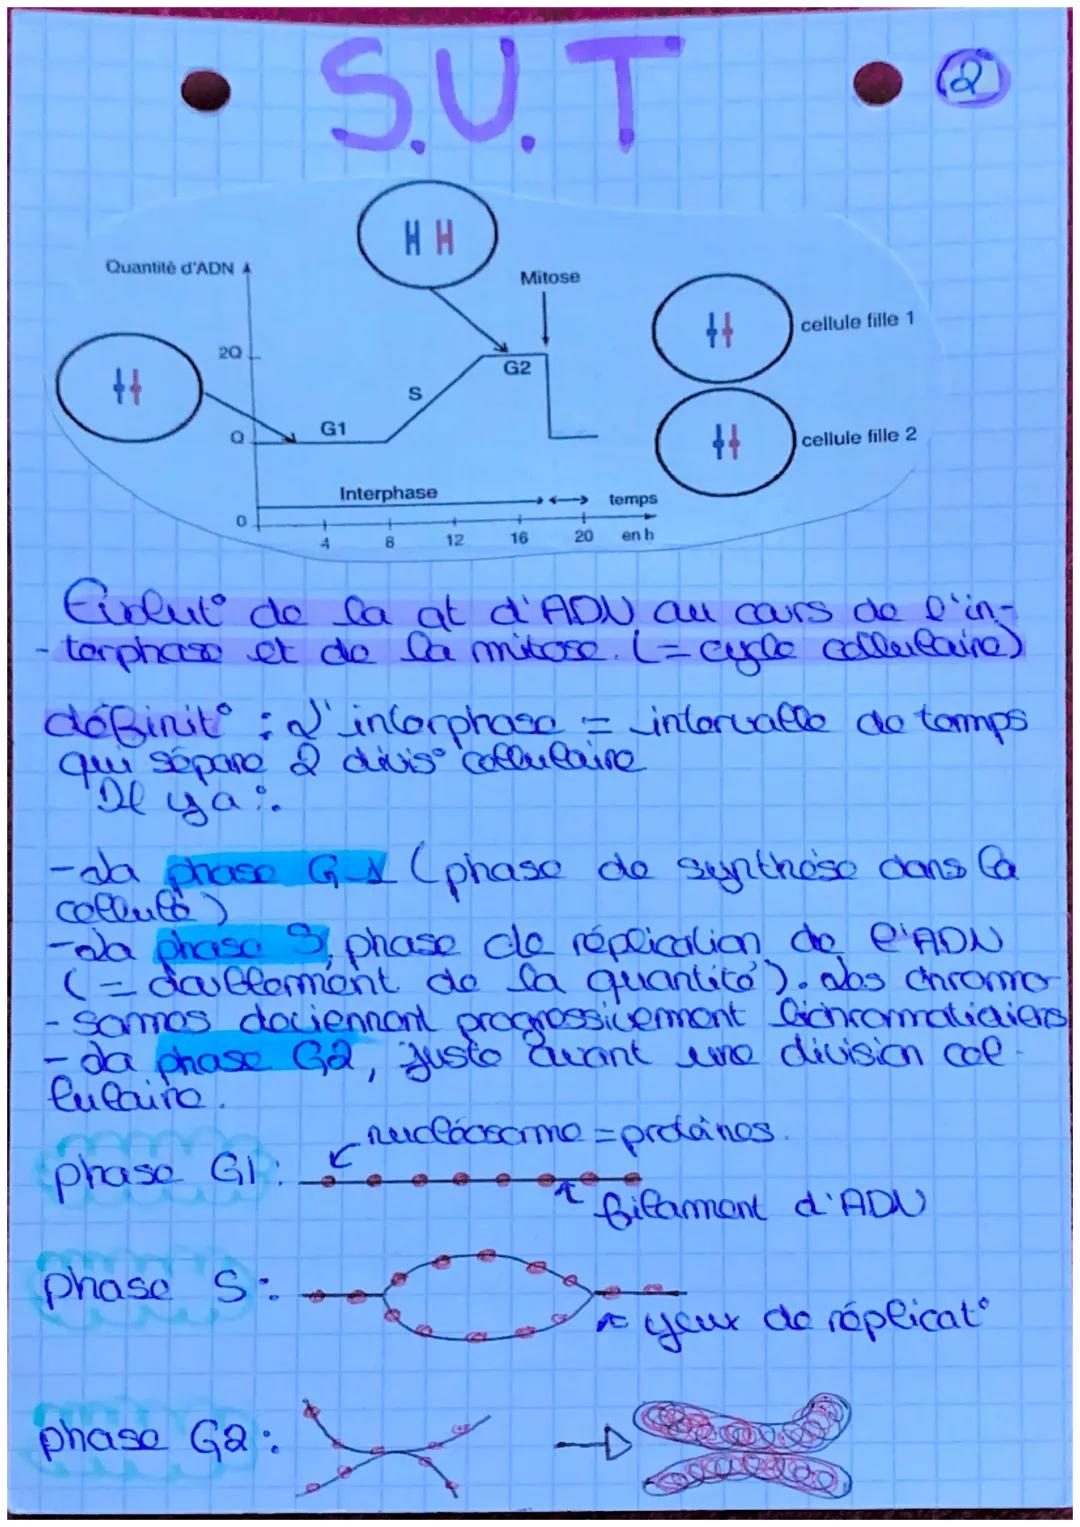 S.V.T
2
Quantité d'ADN
Mitose
cellule fille 1
2Q
G2
S
G1
Q
cellule fille 2
Interphase
temps
0
4 8 12 16 20 en h
Évolut° de la qt d'ADN au cours de l'in-
-terphase et de la mitose. (= cycle cellulaire)
définit° : L'interphase = intervalle de temps
qui sépare 2 divis° cellulaire
Il y a :
-La phase G1 (phase de synthèse dans la
cellule)
-La phase S, phase de réplication de l'ADN
(= doublement de la quantité). Les chromo-
-somes deviennent progressivement bichromatidiens
-La phase G2, juste avant une division cel-
lulaire.
nucléosome = protéines.
phase G1 :
filament d'ADN
phase S :
yeux de réplicat°
phase G2 :